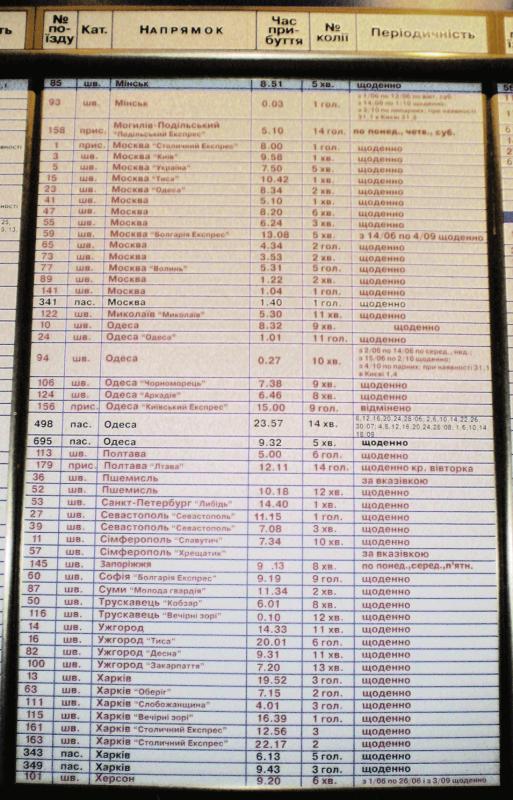 № по-їзду Кат. НАПРЯМОК Час при-буття № колії Періодичність
85 шв. Мінськ 8.51 5 хв. щоденно
93 шв. Мінськ 0.03 1 гол.
158 прис. Могилів-Подільський "Подільський Експрес" 5.10 14 гол. по понед., четв., суб.
1 прис. Москва "Столичний Експрес" 8.00 1 гол. щоденно
3 шв. Москва "Київ" 9.58 1 хв. щоденно
5 шв. Москва "Україна" 7.50 5 хв. щоденно
15 шв. Москва "Тиса" 10.42 1 хв. щоденно
23 шв. Москва "Одеса" 8.34 2 хв. щоденно
41 шв. Москва 5.10 1 хв. щоденно
47 шв. Москва 8.20 6 хв. щоденно
55 шв. Москва 6.24 3 хв. щоденно
59 шв. Москва "Болгарія Експрес" 13.08 5 хв. з 14/06 по 4/09 щоденно
65 шв. Москва 4.34 2 гол. щоденно
73 шв. Москва 3.53 2 хв. щоденно
77 шв. Москва "Волинь" 5.31 5 гол. щоденно
89 шв. Москва 1.22 2 хв. щоденно
141 шв. Москва 1.04 1 гол. щоденно
341 пас. Москва 1.40 1 гол. щоденно
122 шв. Миколаїв "Миколаїв" 5.30 11 хв. щоденно
10 шв. Одеса 8.32 9 хв. щоденно
24 шв. Одеса "Одеса" 1.01 11 гол. щоденно
94 шв. Одеса 0.27 10 хв. з 2/06 по 14/06 по серед., нед.; з 15/06 по 2/10 щоденно; з 4/10 по парних; при наявності 31.1 в Києві 1.4
106 шв. Одеса "Чорноморець" 7.38 9 хв. щоденно
124 шв. Одеса "Аркадія" 6.46 8 хв. щоденно
156 прис. Одеса "Київський Експрес" 15.00 9 гол. відмінено
498 пас. Одеса 23.57 14 хв.
695 пас. Одеса 9.32 5 хв. щоденно
113 шв. Полтава 5.00 6 гол. щоденно
179 прис. Полтава "Лтава" 12.11 14 гол. щоденно кр. вівторка
36 шв. Пшемисль за вказівкою
52 шв. Пшемисль 10.18 12 хв. щоденно
53 шв. Санкт-Петербург "Либідь" 14.40 1 хв. щоденно
27 шв. Севастополь "Севастополь" 11.15 1 гол. щоденно
39 шв. Севастополь "Севастополь" 7.08 3 хв. щоденно
11 шв. Сімферополь "Славутич" 7.34 10 хв. щоденно
57 шв. Сімферополь "Хрещатик" за вказівкою
145 шв. Запоріжжя 9 .13 8 хв. по понед.,серед.,п'ятн.
60 шв. Софія "Болгарія Експрес" 9.19 9 гол. щоденно
87 шв. Суми "Молода гвардія" 11.34 2 хв. щоденно
50 шв. Трускавець "Кобзар" 6.01 8 хв. щоденно
116 шв. Трускавець "Вечірні зорі" 0.10 12 хв. щоденно
14 шв. Ужгород 14.33 11 хв. щоденно
16 шв. Ужгород "Тиса" 20.01 6 гол. щоденно
82 шв. Ужгород "Десна" 9.31 11 хв. щоденно
100 шв. Ужгород "Закарпаття" 7.20 13 хв. щоденно
13 шв. Харків 19.52 3 гол. щоденно
63 шв. Харків "Оберіг" 7.15 2 гол. щоденно
111 шв. Харків "Слобожанщина" 4.01 3 гол. щоденно
115 шв. Харків "Вечірні зорі" 16.39 1 гол. щоденно
161 шв. Харків "Столичний Експрес" 12.56 3 щоденно
163 шв. Харків "Столичний Експрес" 22.17 2 щоденно
343 пас. Харків 6.13 5 гол. щоденно
349 пас. Харків 9.43 3 гол. щоденно
101 шв. Херсон 9.20 6 хв. з 1/06 по 26/06 і з 3/09 щоденно